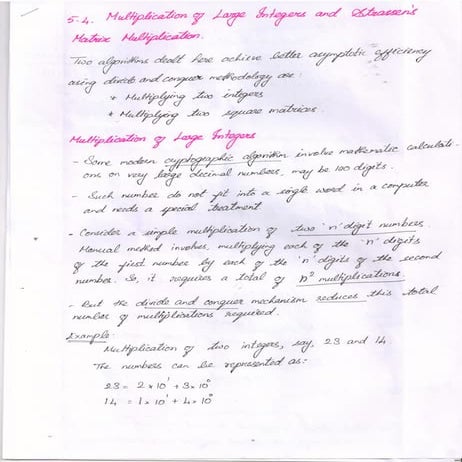 5.4. Multiplication of Large Integers and Strassen's
Matrix Multiplication.
Two algorithms dealt here achieve better asymptotic efficiency
using divide and conquer methodology are:
* Multiplying two integers
* Multiplying two square matrices.
Multiplication of Large Integers
- Some modern cryptographic algorithm involve mathematic calculati-
ons on very large decimal numbers, may be 100 digits.
- Such number do not fit into a single word in a computer
and needs a special treatment
- Consider a simple multiplication of two 'n' digit numbers.
Manual method involves, multiplying each of the 'n' digits
of the first number by each of the 'n' digits of the second
number. So, it requires a total of n² multiplications.
- But the divide and conquer mechanism reduces this total
number of multiplications required.
Example:
Multiplication of two integers, say, 23 and 14
The numbers can be represented as:
23 = 2×10¹ + 3×10⁰
14 = 1×10¹ + 4×10⁰